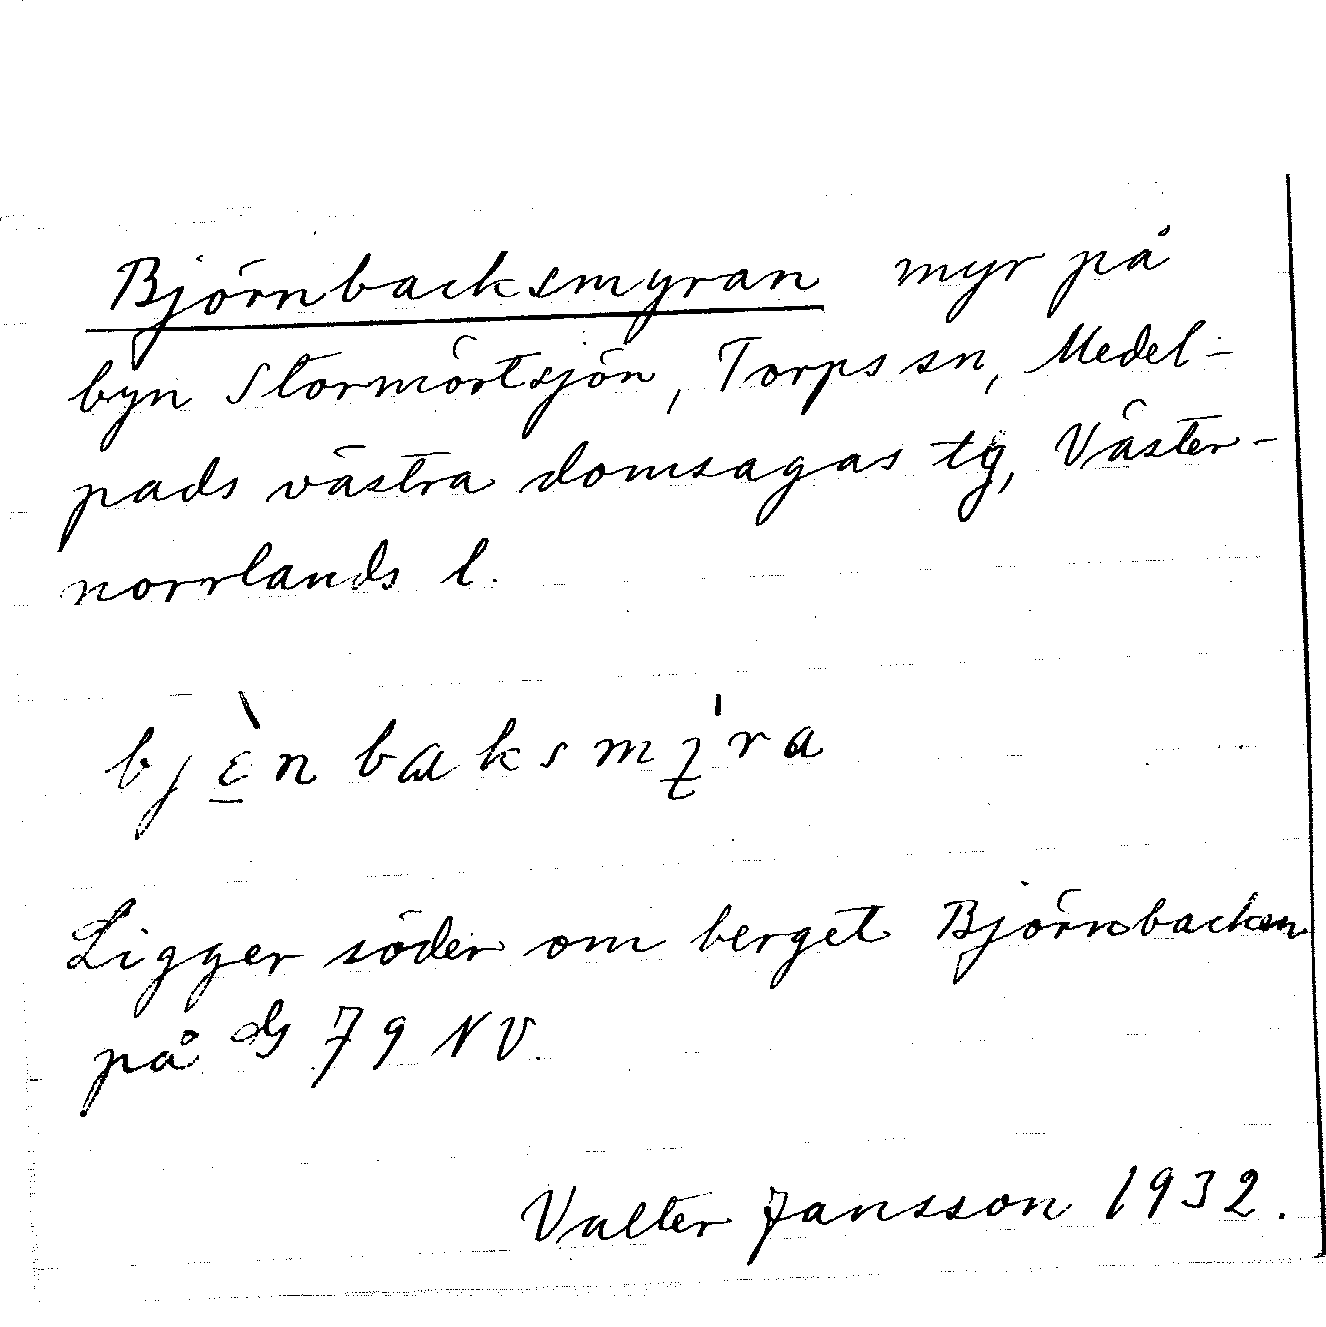 Björnbacksmyran myr på
byn Stormörtsjön, Torps sn, Medel-
pads västra domsagas tg, Väster-
norrlands l.
bjɛ̠̀nbaksmɩ̗ra
Ligger söder om berget Björnbacken
på 79 NV.
Valter Jansson 1932.